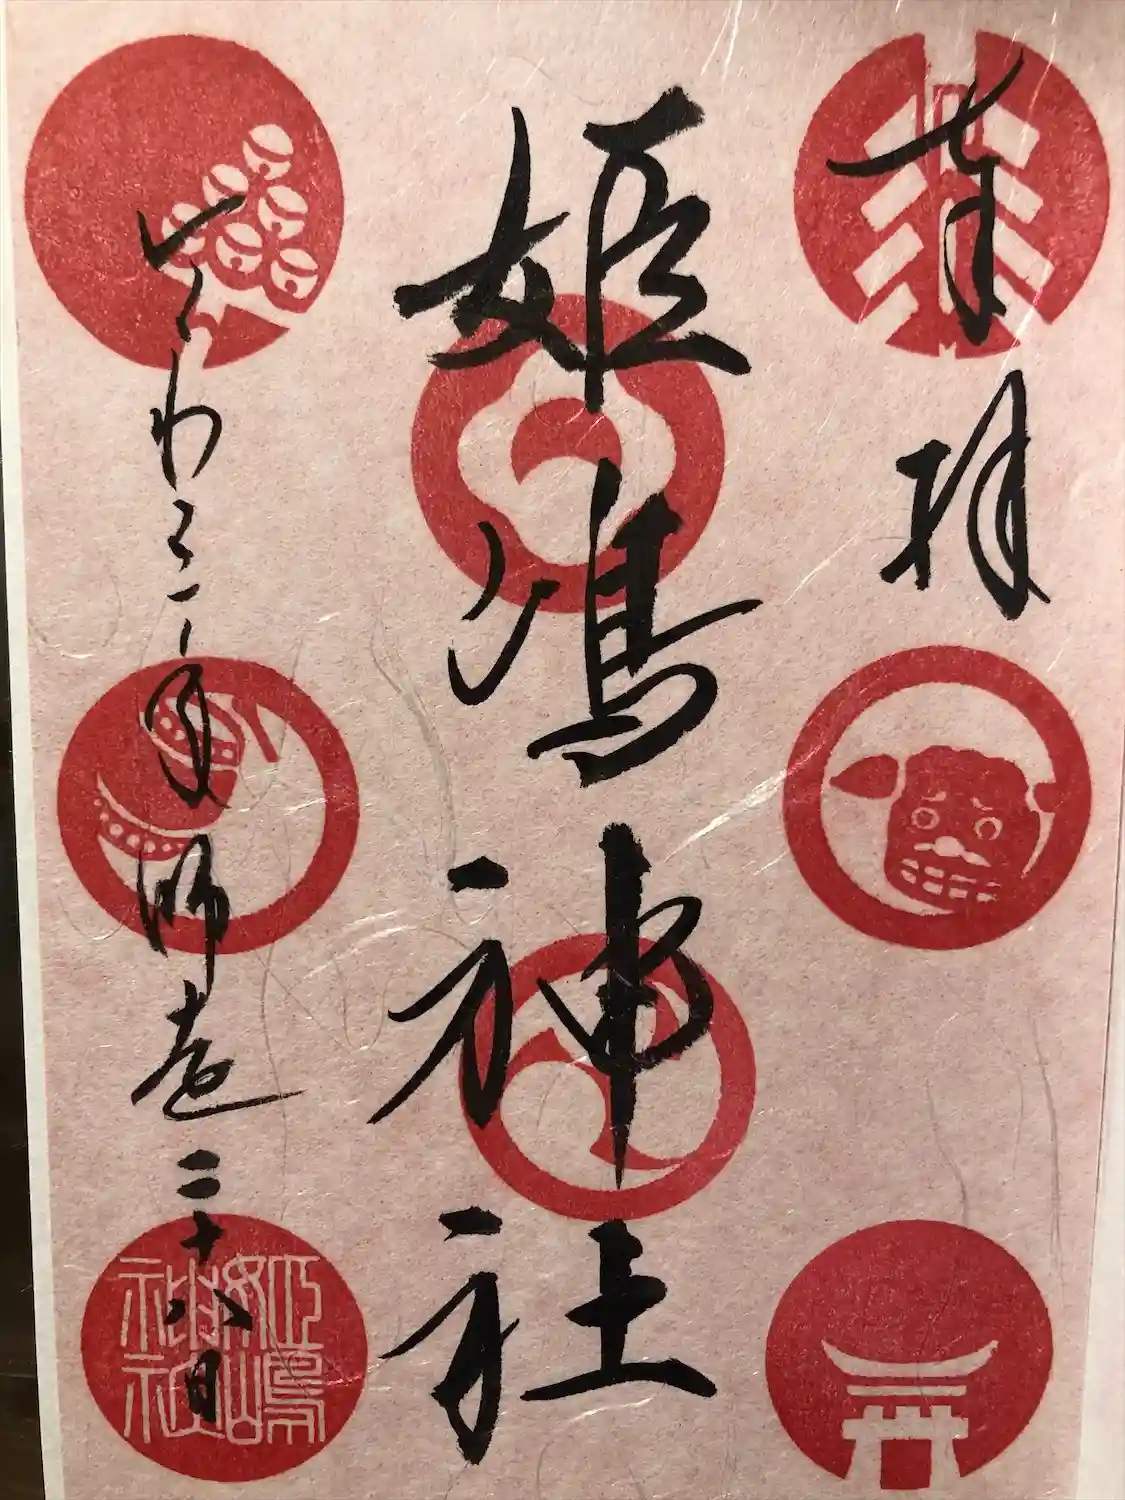 奉拝
姫嶋神社
令和三年師走二十八日
姫嶋
神社